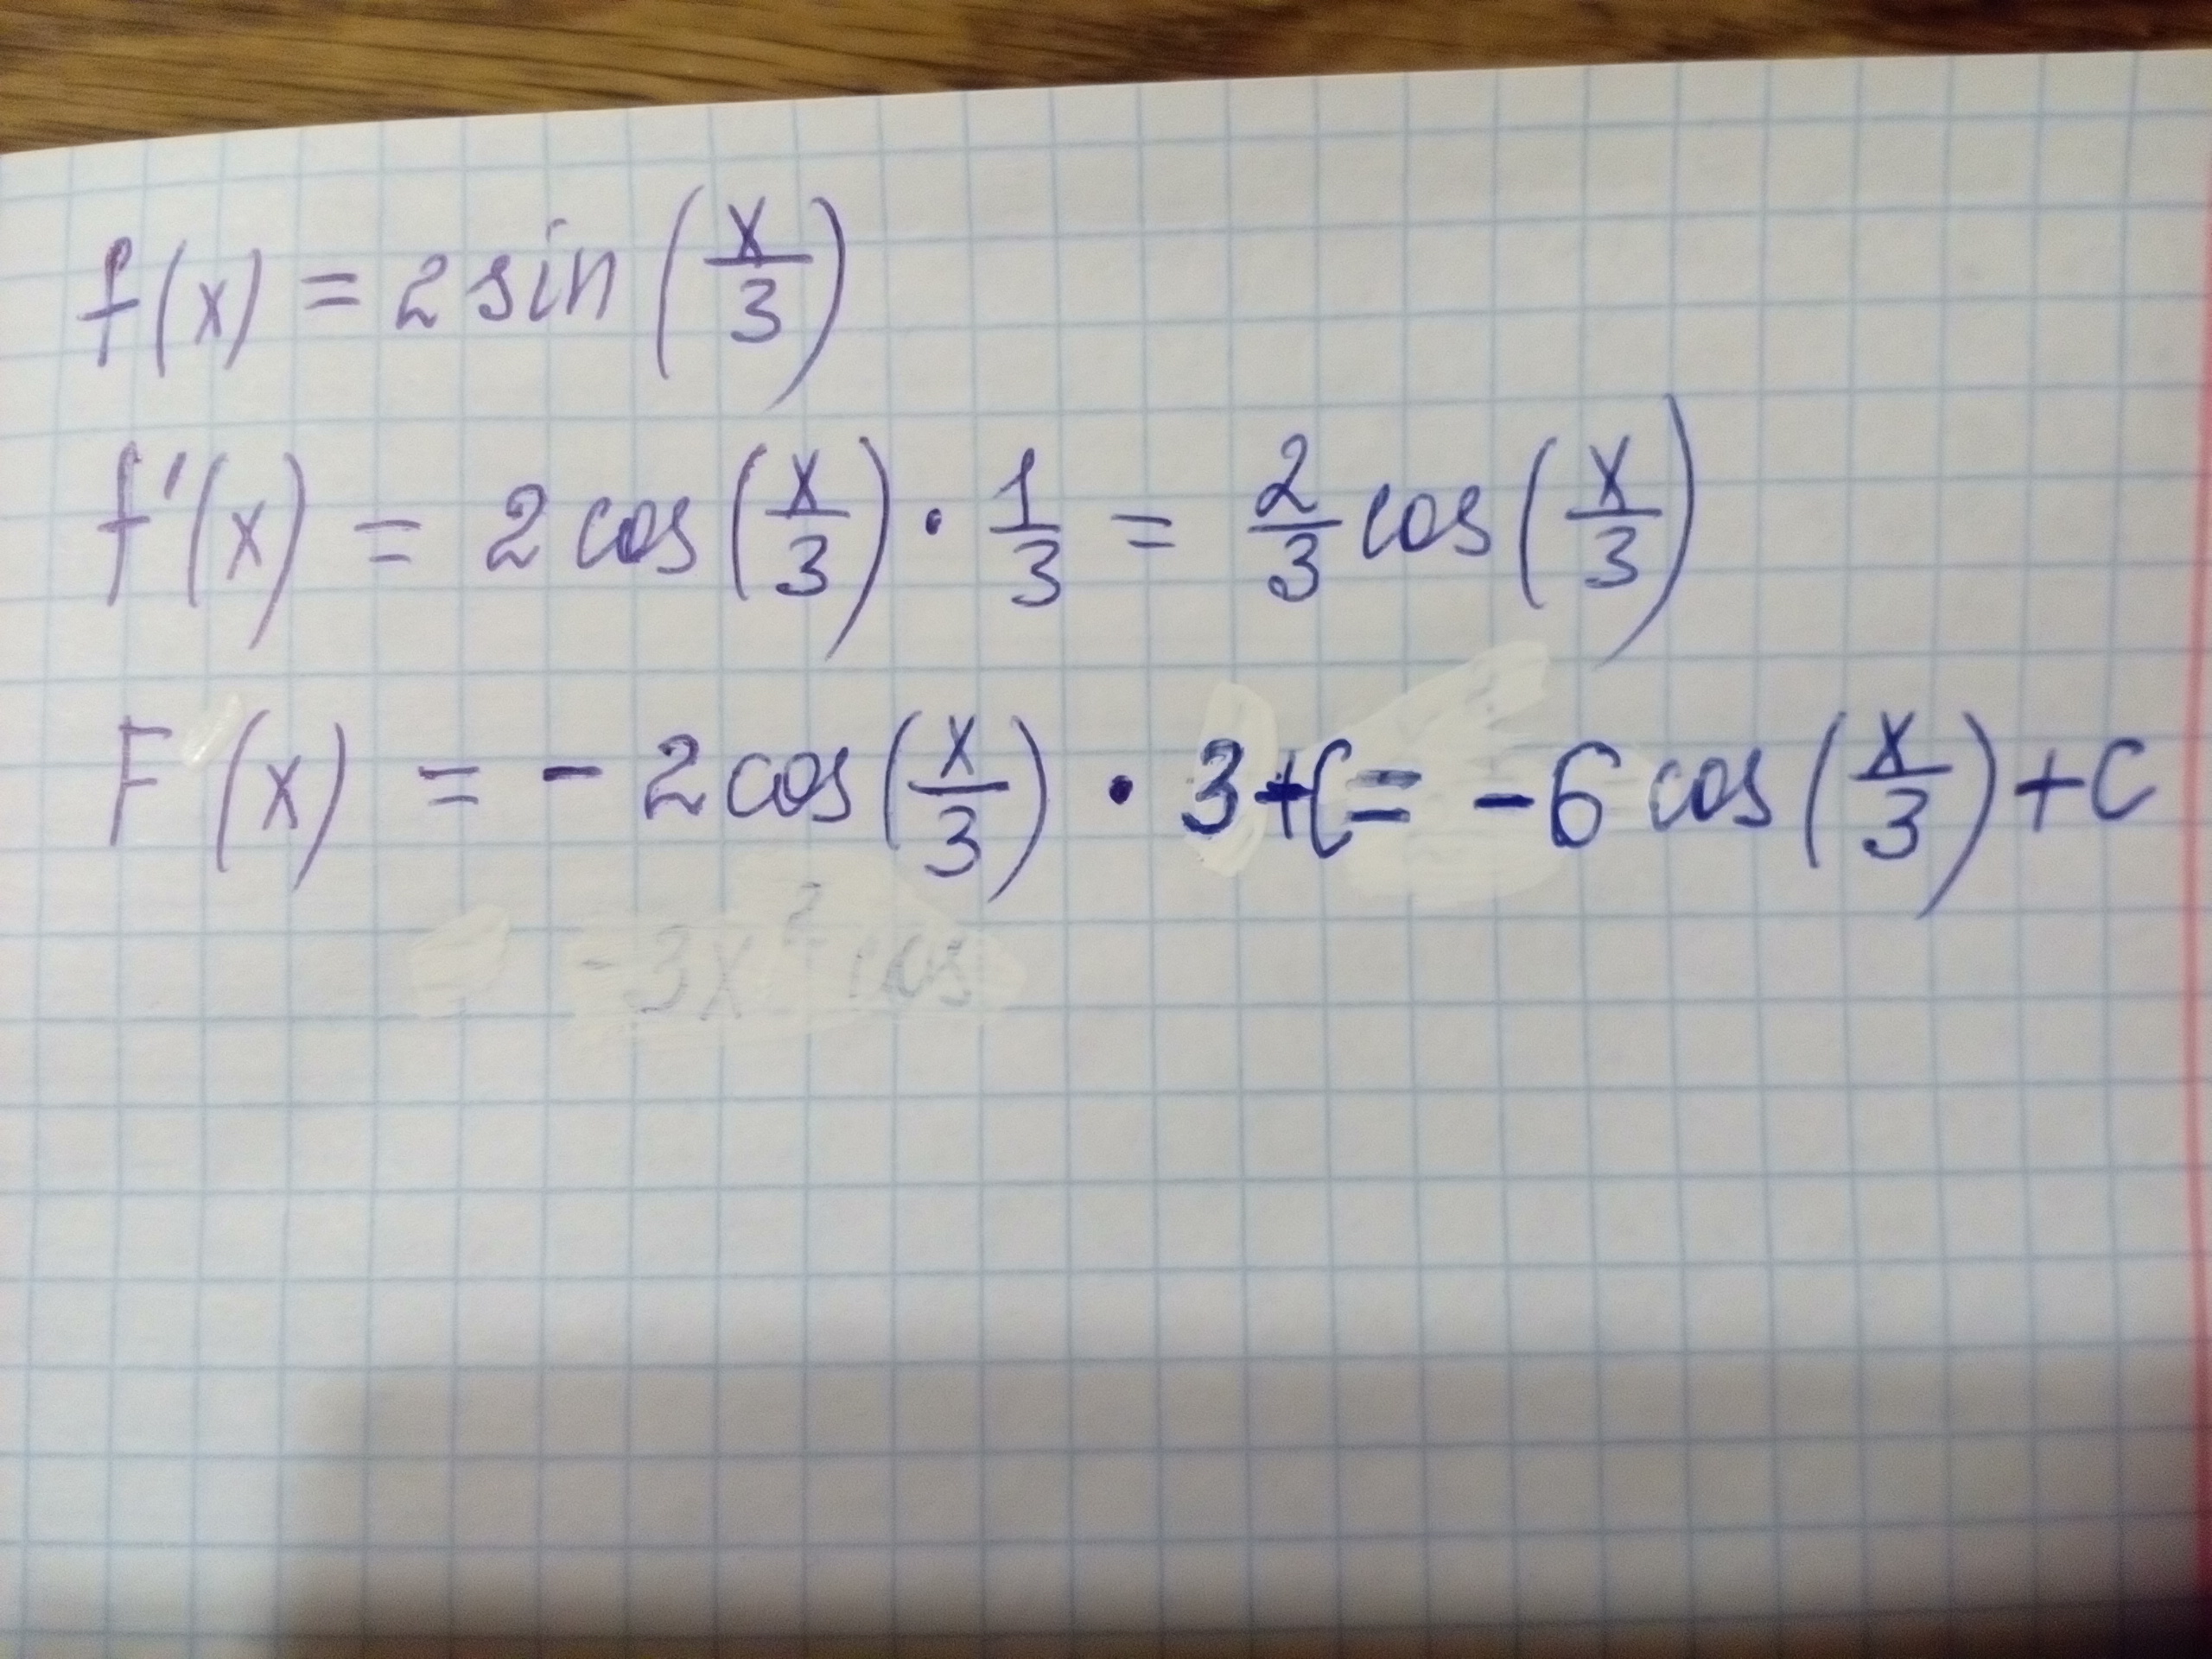 f(x) = 2 sin (x/3)
f'(x) = 2 cos (x/3) · 1/3 = 2/3 cos (x/3)
F(x) = - 2 cos (x/3) · 3 + C = - 6 cos (x/3) + C
- 3x² cos